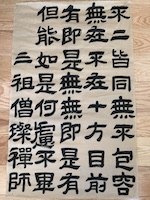 不二皆同無不包容
無在不在十方目前
有即是無無即是有
但能如是何慮不畢
三祖僧璨禪師